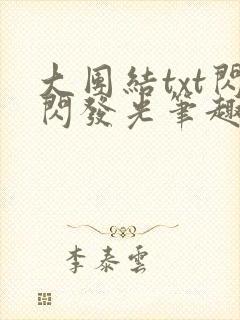 大團結txt閃
閃發光筆趣
李泰雲